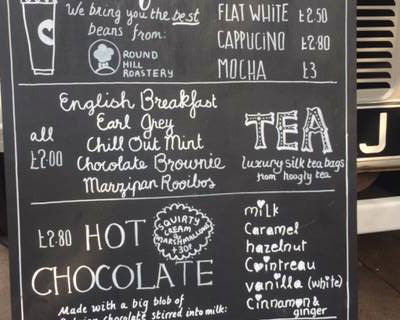 We bring you the best
beans from:
ROUND
HILL
ROASTERY
FLAT WHITE £2.50
CAPPUCINO £2.80
MOCHA £3
English Breakfast
Earl Grey
all
£2.00
Chill Out Mint
Chocolate Brownie
Marzipan Rooibos
TEA
luxury silk tea bags
from hoogly tea
£2.80 HOT
CHOCOLATE
SQUIRTY
CREAM
&
MARSHMALLOWS
+30p
Made with a big blob of
Belgian chocolate stirred into milk:
milk
Caramel
hazelnut
Cointreau
vanilla (white)
Cinnamon &
ginger
J